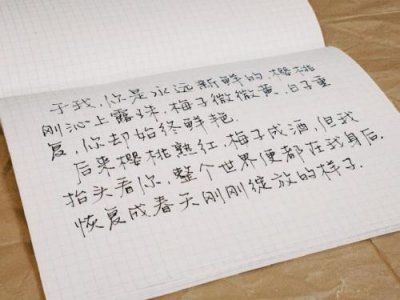 于我,你是永远新鲜的.樱桃
刚沁上露珠,梅子微微黄.日子重
复,你却始终鲜艳.
后来樱桃熟红,梅子成酒,但我
抬头看你,整个世界便都在我身后,
恢复成春天刚刚绽放的样子.